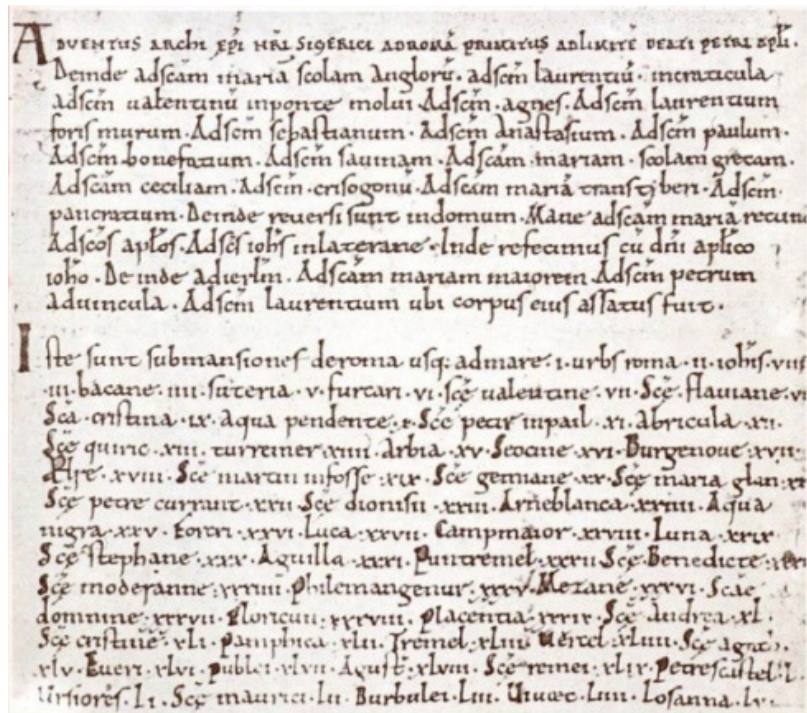 ADVENTUS ARCHI EPI NRI SIGERICI AD ROMA PRIMITUS AD LIMITE BEATI PETRI APLI.
Deinde adscam maria scolam Angloru. adscm laurentiu. incraticula
adscm ualentinu inponte molui. Adscm. agnes. Adscm laurentium
foris murum. Adscm sebastianum. Adscm Anastasium. Adscm paulum.
Adscm. bonefatium. Adscm sauinam. Adscam. mariam. scolam grecam.
Adscam ceciliam. Adscm. crisogonu. Adscam maria transtyberi. Adscm.
pancratium. Deinde reuersi sunt indomum. Mane adscam maria
Adscos aplos. Adscs iohs inlaterane. Inde refecimus cu dni aplico
ioho. Deinde adierlm. Adscam mariam maiorem Adscm petrum
aduincula. Adscm laurentium ubi corpus eius assatus fuit.
Iste sunt submansiones deroma usq; admare. i. urbs roma. ii. iohis. viiii
iii. bacane. iiii. suteria. v. furcari. vi. sce valentine. vii. Sce. flauiane.
Sca. cristina. ix. Aqua pendente. x. Sce petir inpail. xi. Abricula. xii.
Sce quiric. xiii. turreiner. xiiii. Arbia. xv. Seocine. xvi. Burgenoue. xvii.
Aelse. xviii. Sce martin infosse. xix. Sce gemiane. xx. Sce maria glan.
Sce petre currant. xxii. Sce dionisii. xxiii. Arneblanca. xxiiii. Aqua
nigra. xxv. Forcri. xxvi. Luca. xxvii. Campmaior. xxviii. Luna. xxix.
Sce stephane. xxx. Aguilla. xxxi. Puntremel. xxxii. Sce. Benedicte.
Sce moderanne. xxxiiii. Philemangenur. xxxv. Metane. xxxvi. Scae
domnine. xxxvii. Floricun. xxxviii. Placentia. xxxix. Sce Andrea. xl.
Sce cristine. xli. Pamphica. xlii. Tremel. xliii. Uercel. xliiii. Sce agath.
xlv. Everi. xlvi. Publei. xlvii. Agust. xlviii. Sce remei. xlix. Petrescastel. l.
Ursiores. li. Sce maurici. lii. Burbulei. liii. Uiuaec. liiii. Losanna. lv.